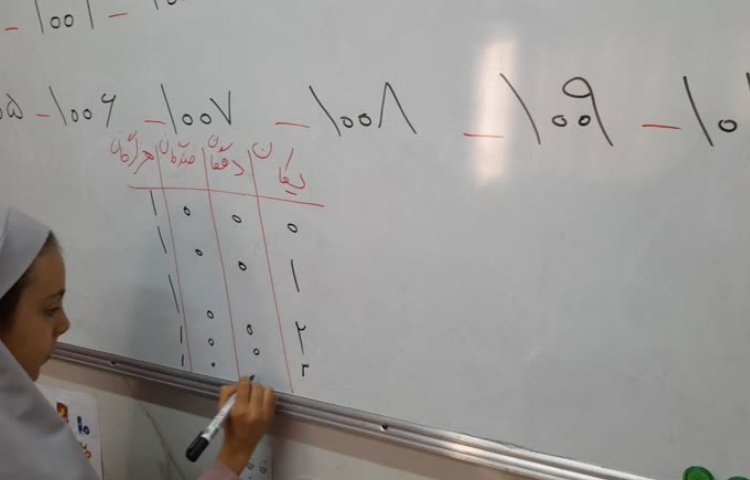 – ۱۰۰۱ –
– ۱۰۰۶ – ۱۰۰۷ – ۱۰۰۸ – ۱۰۰۹ –
هزارگان صدگان دهگان یکان
۱ ۰ ۰ ۰
۱ ۰ ۰ ۱
۱ ۰ ۰ ۲
۱ ۰ ۰ ۳
۱ ۰